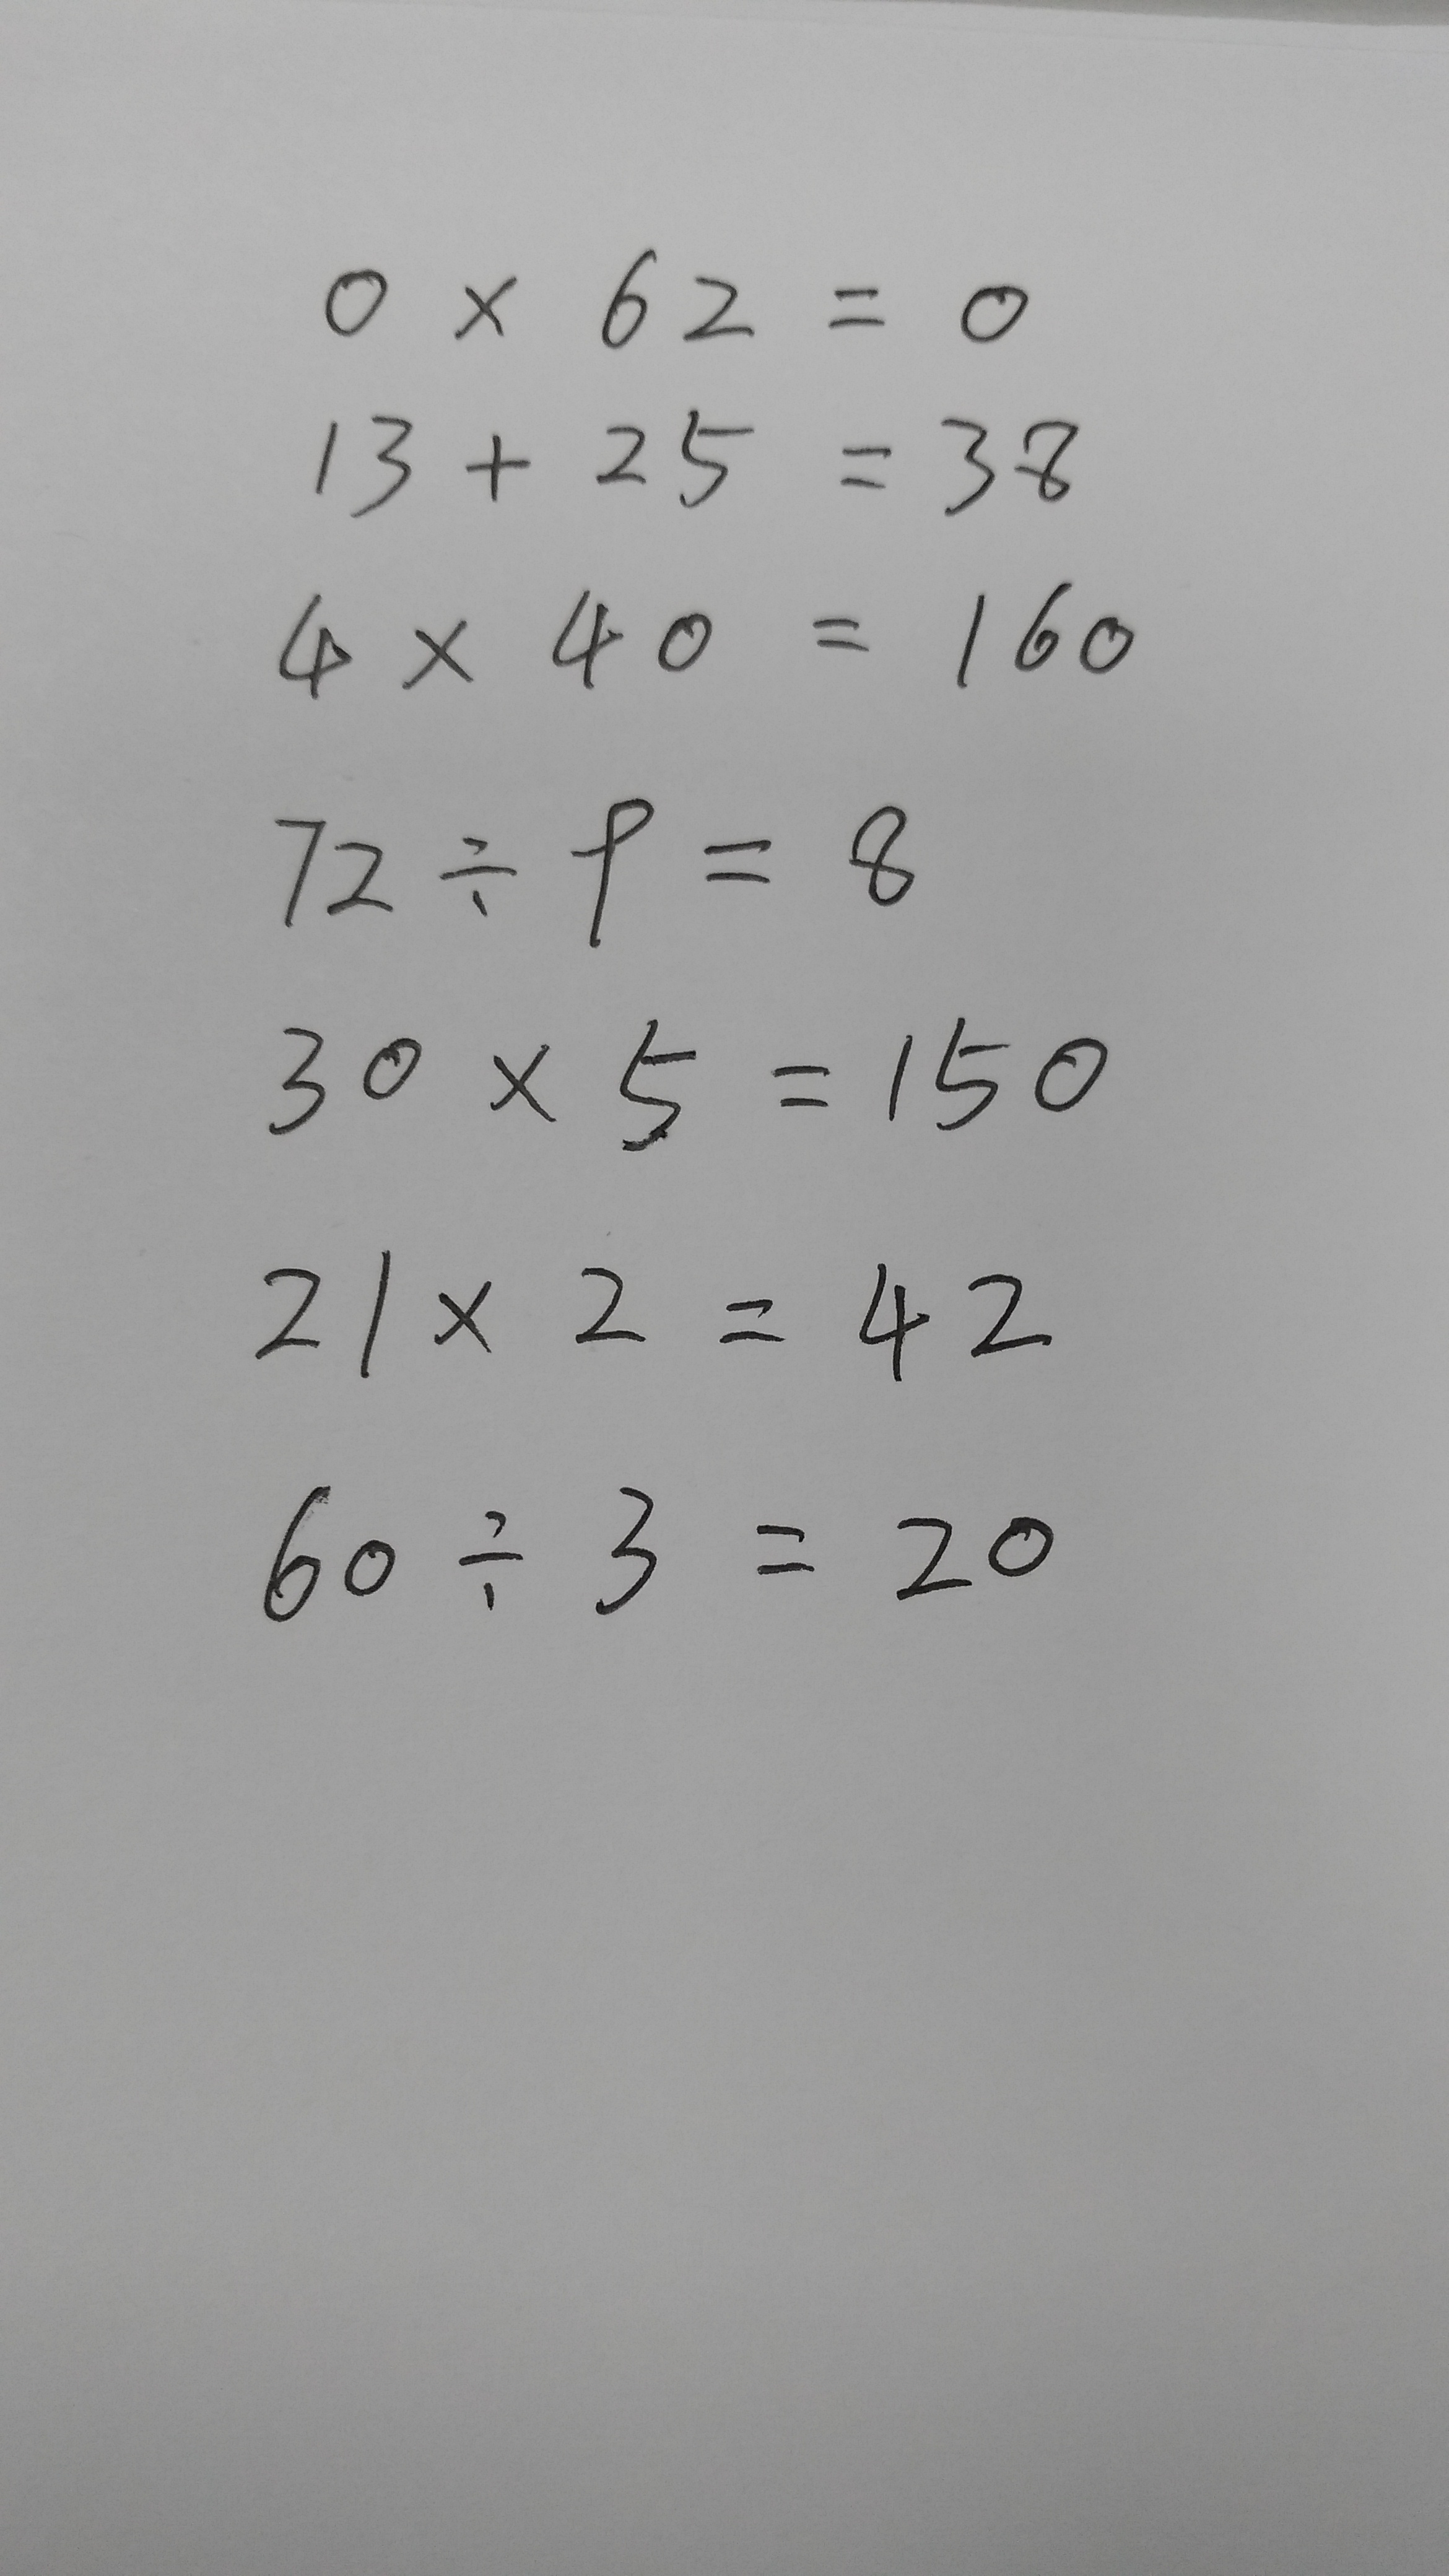 0 × 62 = 0
13 + 25 = 38
4 × 40 = 160
72 ÷ 9 = 8
30 × 5 = 150
21 × 2 = 42
60 ÷ 3 = 20